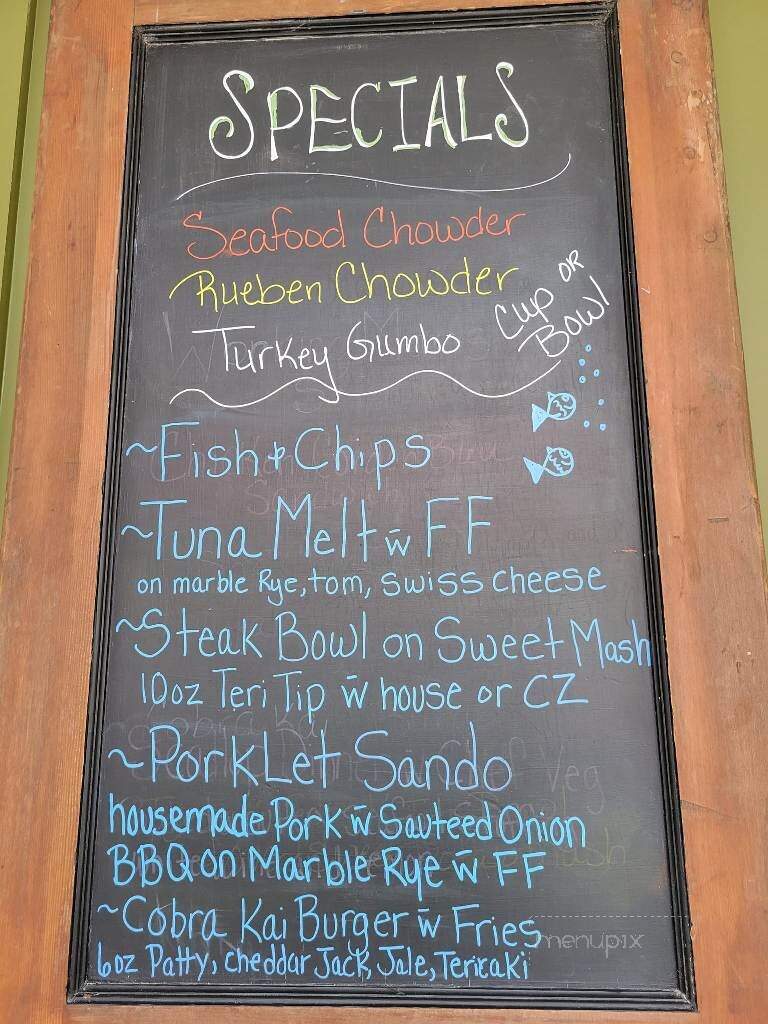 SPECIALS
Seafood Chowder
Rueben Chowder
Turkey Gumbo
Cup OR
Bowl
~Fish & Chips
~Tuna Melt w̄ FF
on marble Rye, tom, swiss cheese
~Steak Bowl on Sweet Mash
10oz Teri Tip w̄ house or CZ
~PorkLet Sando
housemade Pork w̄ Sauteed Onion
BBQ on Marble Rye w̄ FF
~Cobra Kai Burger w̄ Fries
6oz Patty, cheddar Jack, Jale, Tericaki
menupix